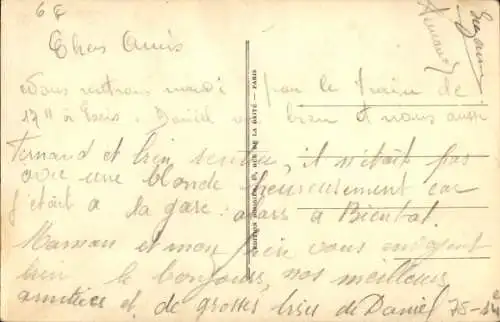 6 F
Chers Amis
Suzanne
Fernand
Nous rentrons mardi par le train de
17 H à Paris. Daniel va bien et nous aussi
Fernand et bien sérieux, il n'était pas
avec une blonde heureusement car
j'était a la gare. alors a Bientot
Maman et mon père vous envoyent
bien le bonjour, nos meilleurs
amitiées et de grosses bises de Daniel 75-14e
PARIS